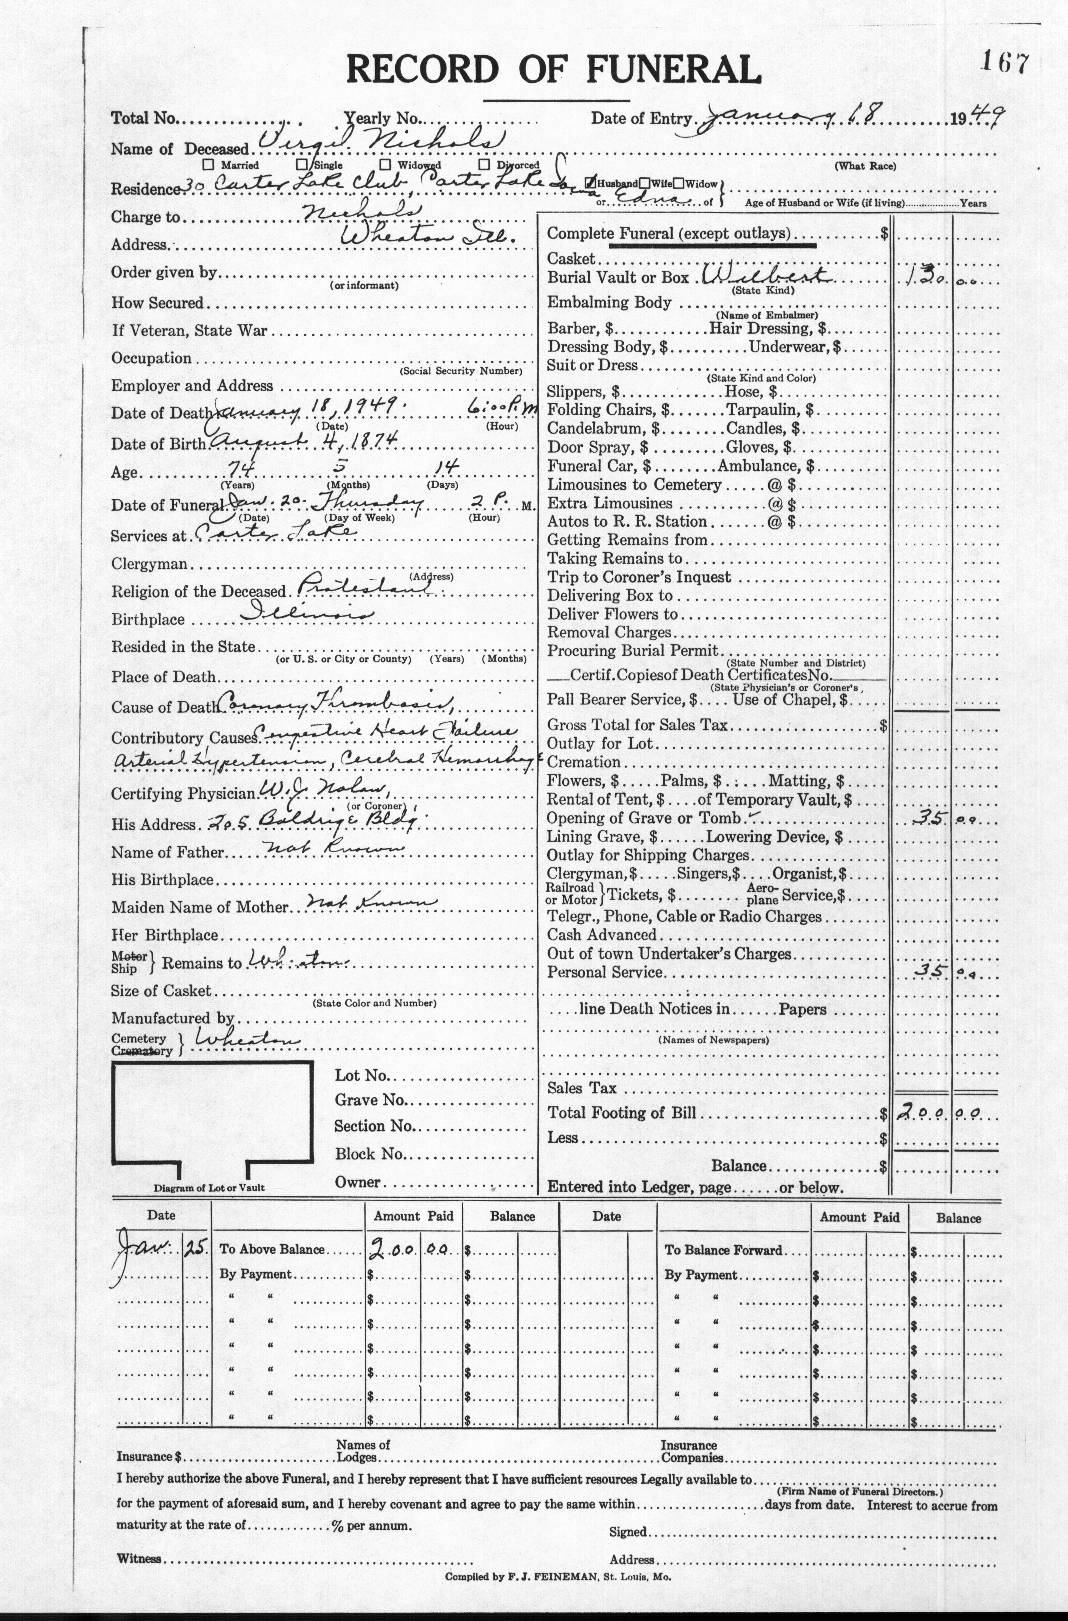 167
RECORD OF FUNERAL
Total No............... Yearly No............... Date of Entry January 18 1949
Name of Deceased Virgil Nichols
☐ Married ☐ Single ☐ Widowed ☐ Divorced (What Race)
Residence 30 Carter Lake Club, Carter Lake Iowa ☑Husband☐Wife☐Widow }
or Edna of } Age of Husband or Wife (if living)..................Years
Charge to Nichols
Address Wheaton Ill.
Order given by
(or informant)
How Secured
If Veteran, State War
Occupation
(Social Security Number)
Employer and Address
Date of Death January 18, 1949. 6:00 P.M
(Date) (Hour)
Date of Birth August 4, 1874
Age 74 5 14
(Years) (Months) (Days)
Date of Funeral Jan. 20. Thursday 2 P. M.
(Date) (Day of Week) (Hour)
Services at Carter Lake
Clergyman
(Address)
Religion of the Deceased Protestant
Birthplace Illinois
Resided in the State
(or U. S. or City or County) (Years) (Months)
Place of Death
Cause of Death Coronary Thrombosis,
Contributory Causes Congestive Heart Failure
Arterial Hypertension, Cerebral Hemorrhage
Certifying Physician W. J. Nolan,
(or Coroner)
His Address 205 Baldrige Bldg.
Name of Father Not Known
His Birthplace
Maiden Name of Mother Not Known
Her Birthplace
Motor
Ship } Remains to Wheaton
Size of Casket
(State Color and Number)
Manufactured by
Cemetery
Crematory } Wheaton
Lot No.
Grave No.
Section No.
Block No.
Owner
Diagram of Lot or Vault
Complete Funeral (except outlays) $
Casket
Burial Vault or Box Wilbert 130 00
(State Kind)
Embalming Body
(Name of Embalmer)
Barber, $............Hair Dressing, $
Dressing Body, $..........Underwear, $
Suit or Dress
(State Kind and Color)
Slippers, $.............Hose, $
Folding Chairs, $.......Tarpaulin, $
Candelabrum, $........Candles, $
Door Spray, $..........Gloves, $
Funeral Car, $........Ambulance, $
Limousines to Cemetery.....@ $
Extra Limousines...........@ $
Autos to R. R. Station.......@ $
Getting Remains from
Taking Remains to
Trip to Coroner's Inquest
Delivering Box to
Deliver Flowers to
Removal Charges
Procuring Burial Permit
(State Number and District)
___Certif.Copiesof Death CertificatesNo.
(State Physician's or Coroner's
Pall Bearer Service, $.... Use of Chapel, $
Gross Total for Sales Tax $
Outlay for Lot
Cremation
Flowers, $.....Palms, $.....Matting, $
Rental of Tent, $....of Temporary Vault, $
Opening of Grave or Tomb ✓ 35 00
Lining Grave, $......Lowering Device, $
Outlay for Shipping Charges
Clergyman,$.....Singers,$....Organist,$
Railroad
or Motor } Tickets, $........ Aero-
plane Service,$
Telegr., Phone, Cable or Radio Charges
Cash Advanced
Out of town Undertaker's Charges
Personal Service 35 00
....line Death Notices in......Papers
(Names of Newspapers)
Sales Tax
Total Footing of Bill $ 200 00
Less $
Balance $
Entered into Ledger, page......or below.
Date Amount Paid Balance Date Amount Paid Balance
Jan. 25 To Above Balance 200 00 $ To Balance Forward $
By Payment $ $ By Payment $ $
“ “ $ $ “ “ $ $
“ “ $ $ “ “ $ $
“ “ $ $ “ “ $ $
“ “ $ $ “ “ $ $
“ “ $ $ “ “ $ $
“ “ $ $ “ “ $ $
Insurance $ Names of
Lodges Insurance
Companies
I hereby authorize the above Funeral, and I hereby represent that I have sufficient resources Legally available to
(Firm Name of Funeral Directors.)
for the payment of aforesaid sum, and I hereby covenant and agree to pay the same within....................days from date. Interest to accrue from
maturity at the rate of.............% per annum.
Signed
Witness Address
Compiled by F. J. FEINEMAN, St. Louis, Mo.